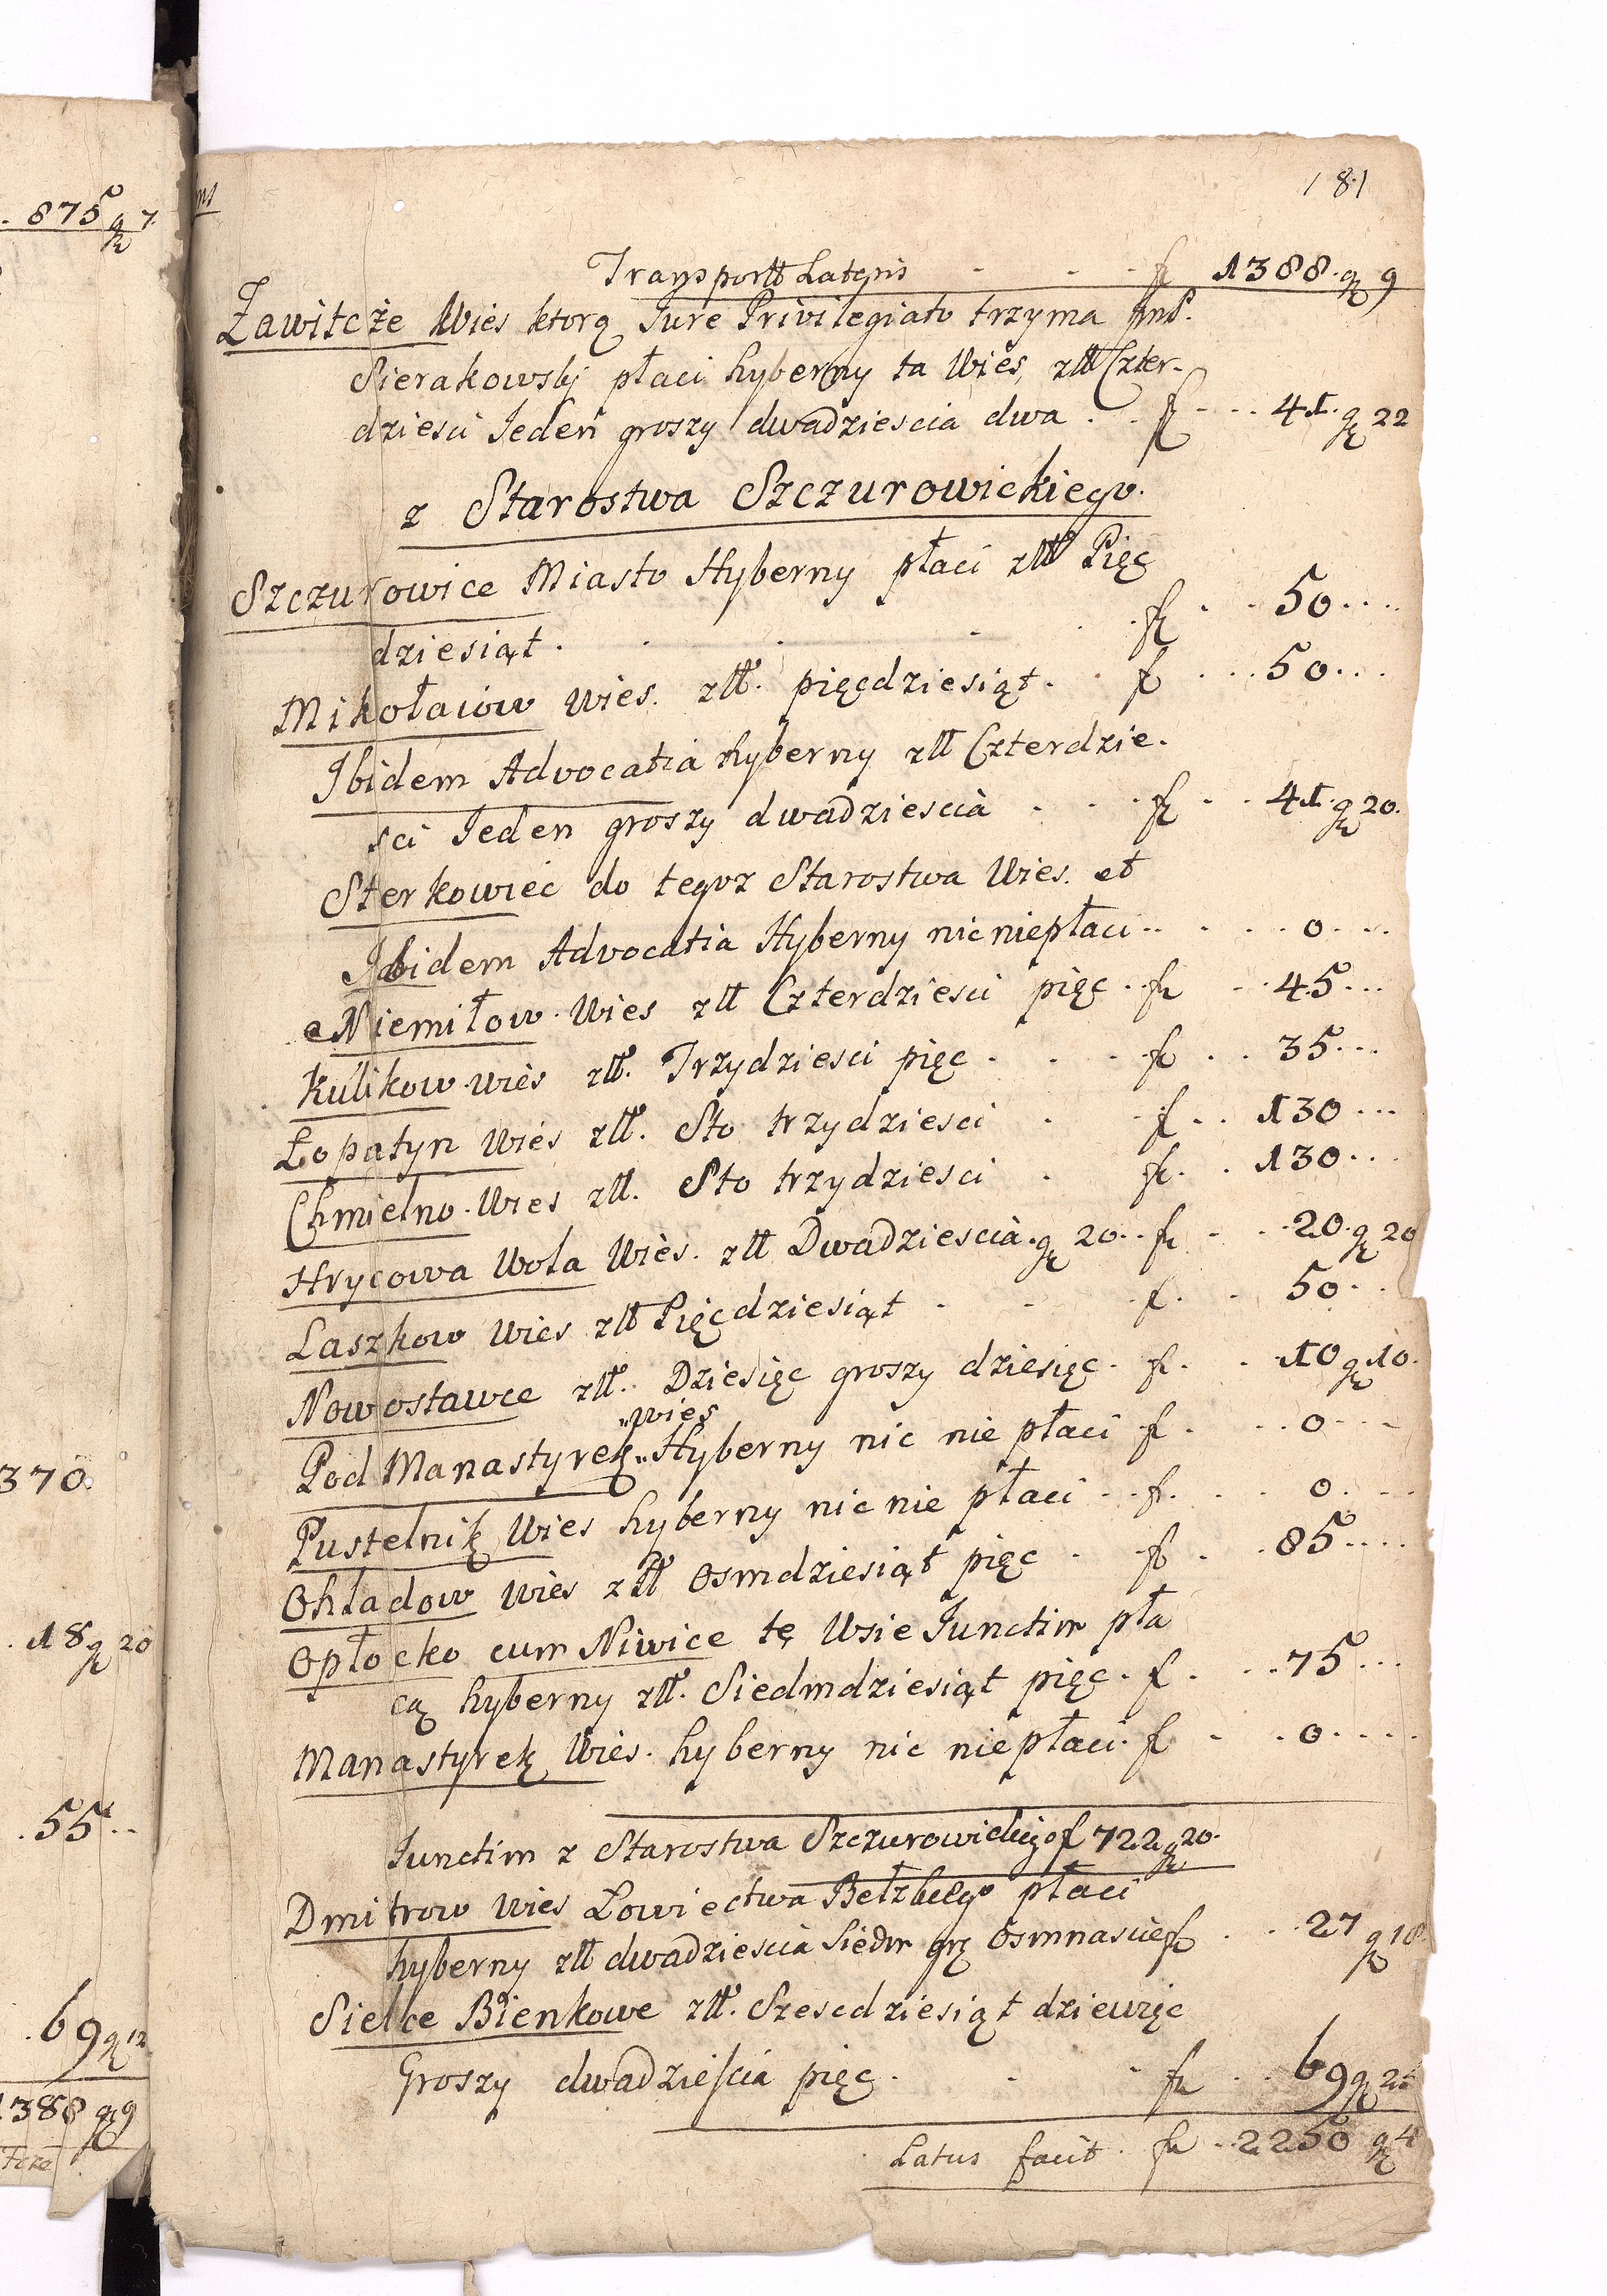 . 875 gr 7.
370.
. 18 gr 20
. 55 . .
. 69 gr 12
1388 gr 9
181
Transportt Lateris - - - f 1388. gr 9
Zawitcże Wies ktorą Jure Privilegiato trzyma Jmp.
Sierakowskj płaci hyberny ta Wies, złł Czter-
dziesci Jeden groszy dwadziescia dwa . . f . . . 41. gr 22
z Starostwa Szczurowickiego.
Szczurowice Miasto Hyberny płaci złł Pięć
dziesiąt . . . . . f . . 50 . . . .
Mikołaiow wies. złł. pięćdziesiąt . . f . . . 50 . . .
Ibidem Advocatia hyberny złł Czterdzie-
sci Jeden groszy dwadziescia . . . f . . 41. gr 20.
Sterkowiec do tegoz Starostwa Wies. et
Ibidem Advocatia Hyberny nic niepłaci . . . . . 0 . . .
Niemiłow. Wies złł Czterdziesci pięc . . f . . 45 . . .
Kulikow wies złł. Trzydziesci pięc . . . f . . 35 . . .
Łopatyn wies złł. Sto trzydziesci . . f . . 130 . . .
Chmielno. Wies złł. Sto trzydziesci . f . . 130 . . .
Hrycowa Wola Wies. złł Dwadziescia. gr 20 . . f . . . 20. gr 20
Laszkow wies złł Pięćdziesiąt . . . f . . 50 . .
Nowostawce złł. Dziesięc groszy dziesięc . f . . . 10 gr 10.
"wies
Pod Manastyrek " Hyberny nic nie płaci f . . . 0 . . .
Pustelnik Wies hyberny nic nie płaci . . f . . . 0 . . .
Ohladow wies złł Osmdziesiąt pięc . f . . 85 . . . .
Opłocko cum Niwice te Wsie Junctim pła
cą hyberny złł. Siedmdziesiąt pięc . f . . . 75 . . .
Manastyrek Wies. hyberny nic niepłaci . f . . 0 . . . .
Junctim z Starostwa Szczurowickiego f 722 gr 20.
Dmitrow wies Łowiectwa Bełzkiego płaci
hyberny złł dwadziescia Siedm gr Osmnascie f . . 27 gr 18.
Sielce Bienkowe złł. Szescdziesiąt dziewięc
Groszy dwadzieścia pięc . . . f . . 69 gr 25
Latus facit . f . . 2250 gr 4